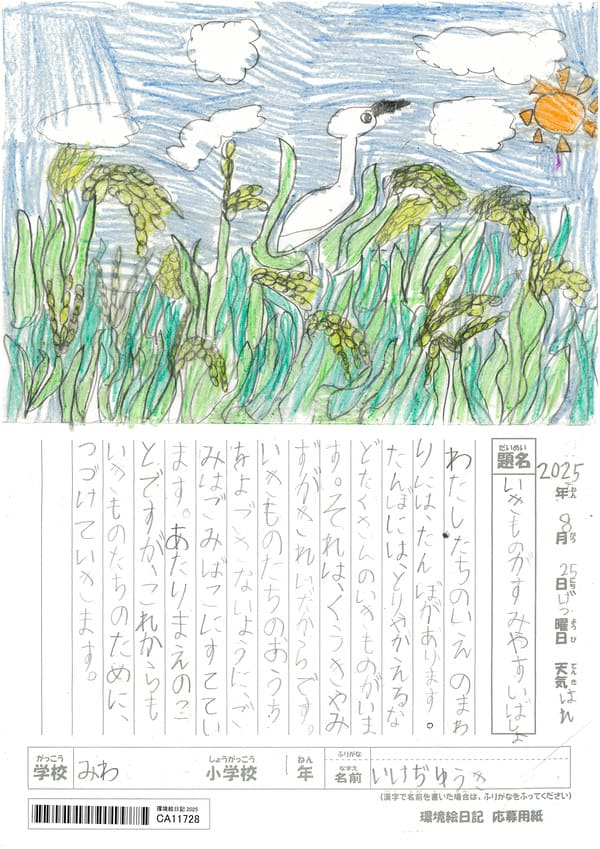 2025年8月25日げつ曜日 天気 はれ
ねん
がつ
にち
ようび
てんき
だいめい
題名
いきものがすみやすいばしょ
わたしたちのいえのまわ
りには、たんぼがあります。
たんぼには、とりやかえるな
どたくさんのいきものがいま
す。それは、くうきやみ
ずがきれいだからです。
いきものたちのおうち
をよごさないように、ご
みはごみばこにすててい
ます。あたりまえのこ
とですが、これからも
いきものたちのために、
つづけていきます。
がっこう
学校
みわ
しょうがっこう
小学校
1
ねん
年
ふりがな
なまえ
名前
いけぢゆうき
(漢字で名前を書いた場合は、ふりがなをふってください)
環境絵日記 2025
CA11728
環境絵日記 応募用紙